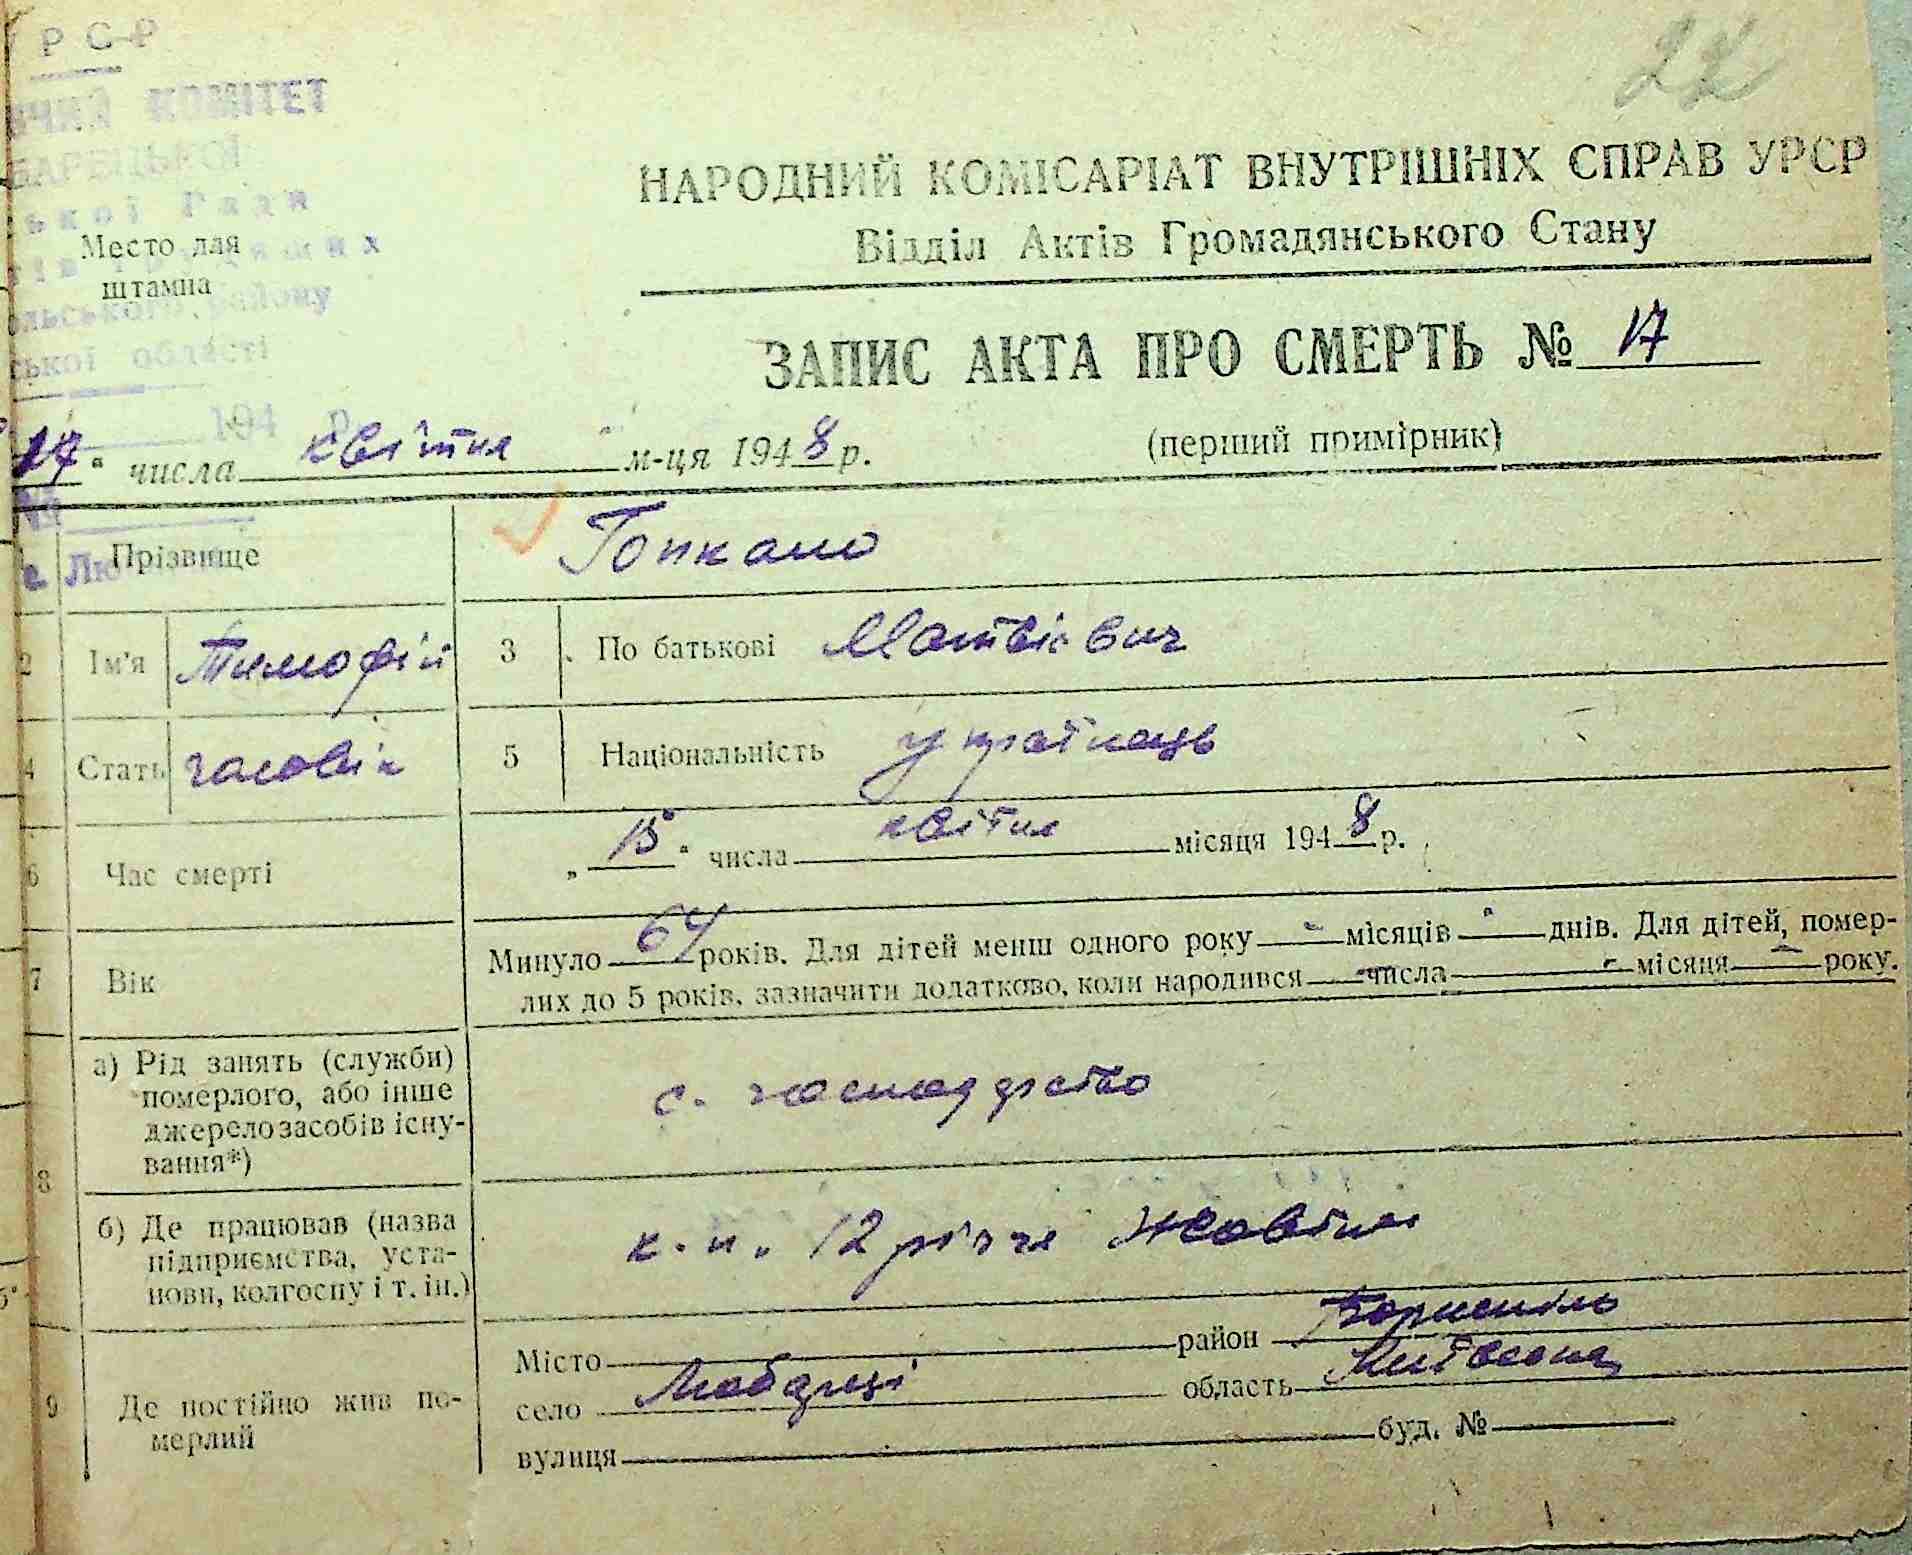 Р С Р
22
КОМІТЕТ
БАРЕЦЬКОЇ
ької Ради
Место для
штампа
ольського району
ської області
194
НАРОДНИЙ КОМІСАРІАТ ВНУТРІШНІХ СПРАВ УРСР
Відділ Актів Громадянського Стану
ЗАПИС АКТА ПРО СМЕРТЬ № 17
(перший примірник)
17 " числа квітня м-ця 1948 р.
с. Лю
Прізвище
2 Ім'я Тимофій 3 По батькові Матвієвич
4 Стать чоловік 5 Національність українець
6 Час смерті „ 15 " числа квітня місяця 1948 р.
7 Вік Минуло 64 років. Для дітей менш одного року - місяців - днів. Для дітей, помер-
лих до 5 років, зазначити додатково, коли народився - числа - місяця - року.
8 а) Рід занять (служби)
померлого, або інше
джерело засобів існу-
вання*)
с. господарство
б) Де працював (назва
підприємства, уста-
нови, колгоспу і т. ін.)
12 річчя Жовтня
9 Де постійно жив по-
мерлий
Місто район Бориспіль
село Любарці область Київська
вулиця буд. №